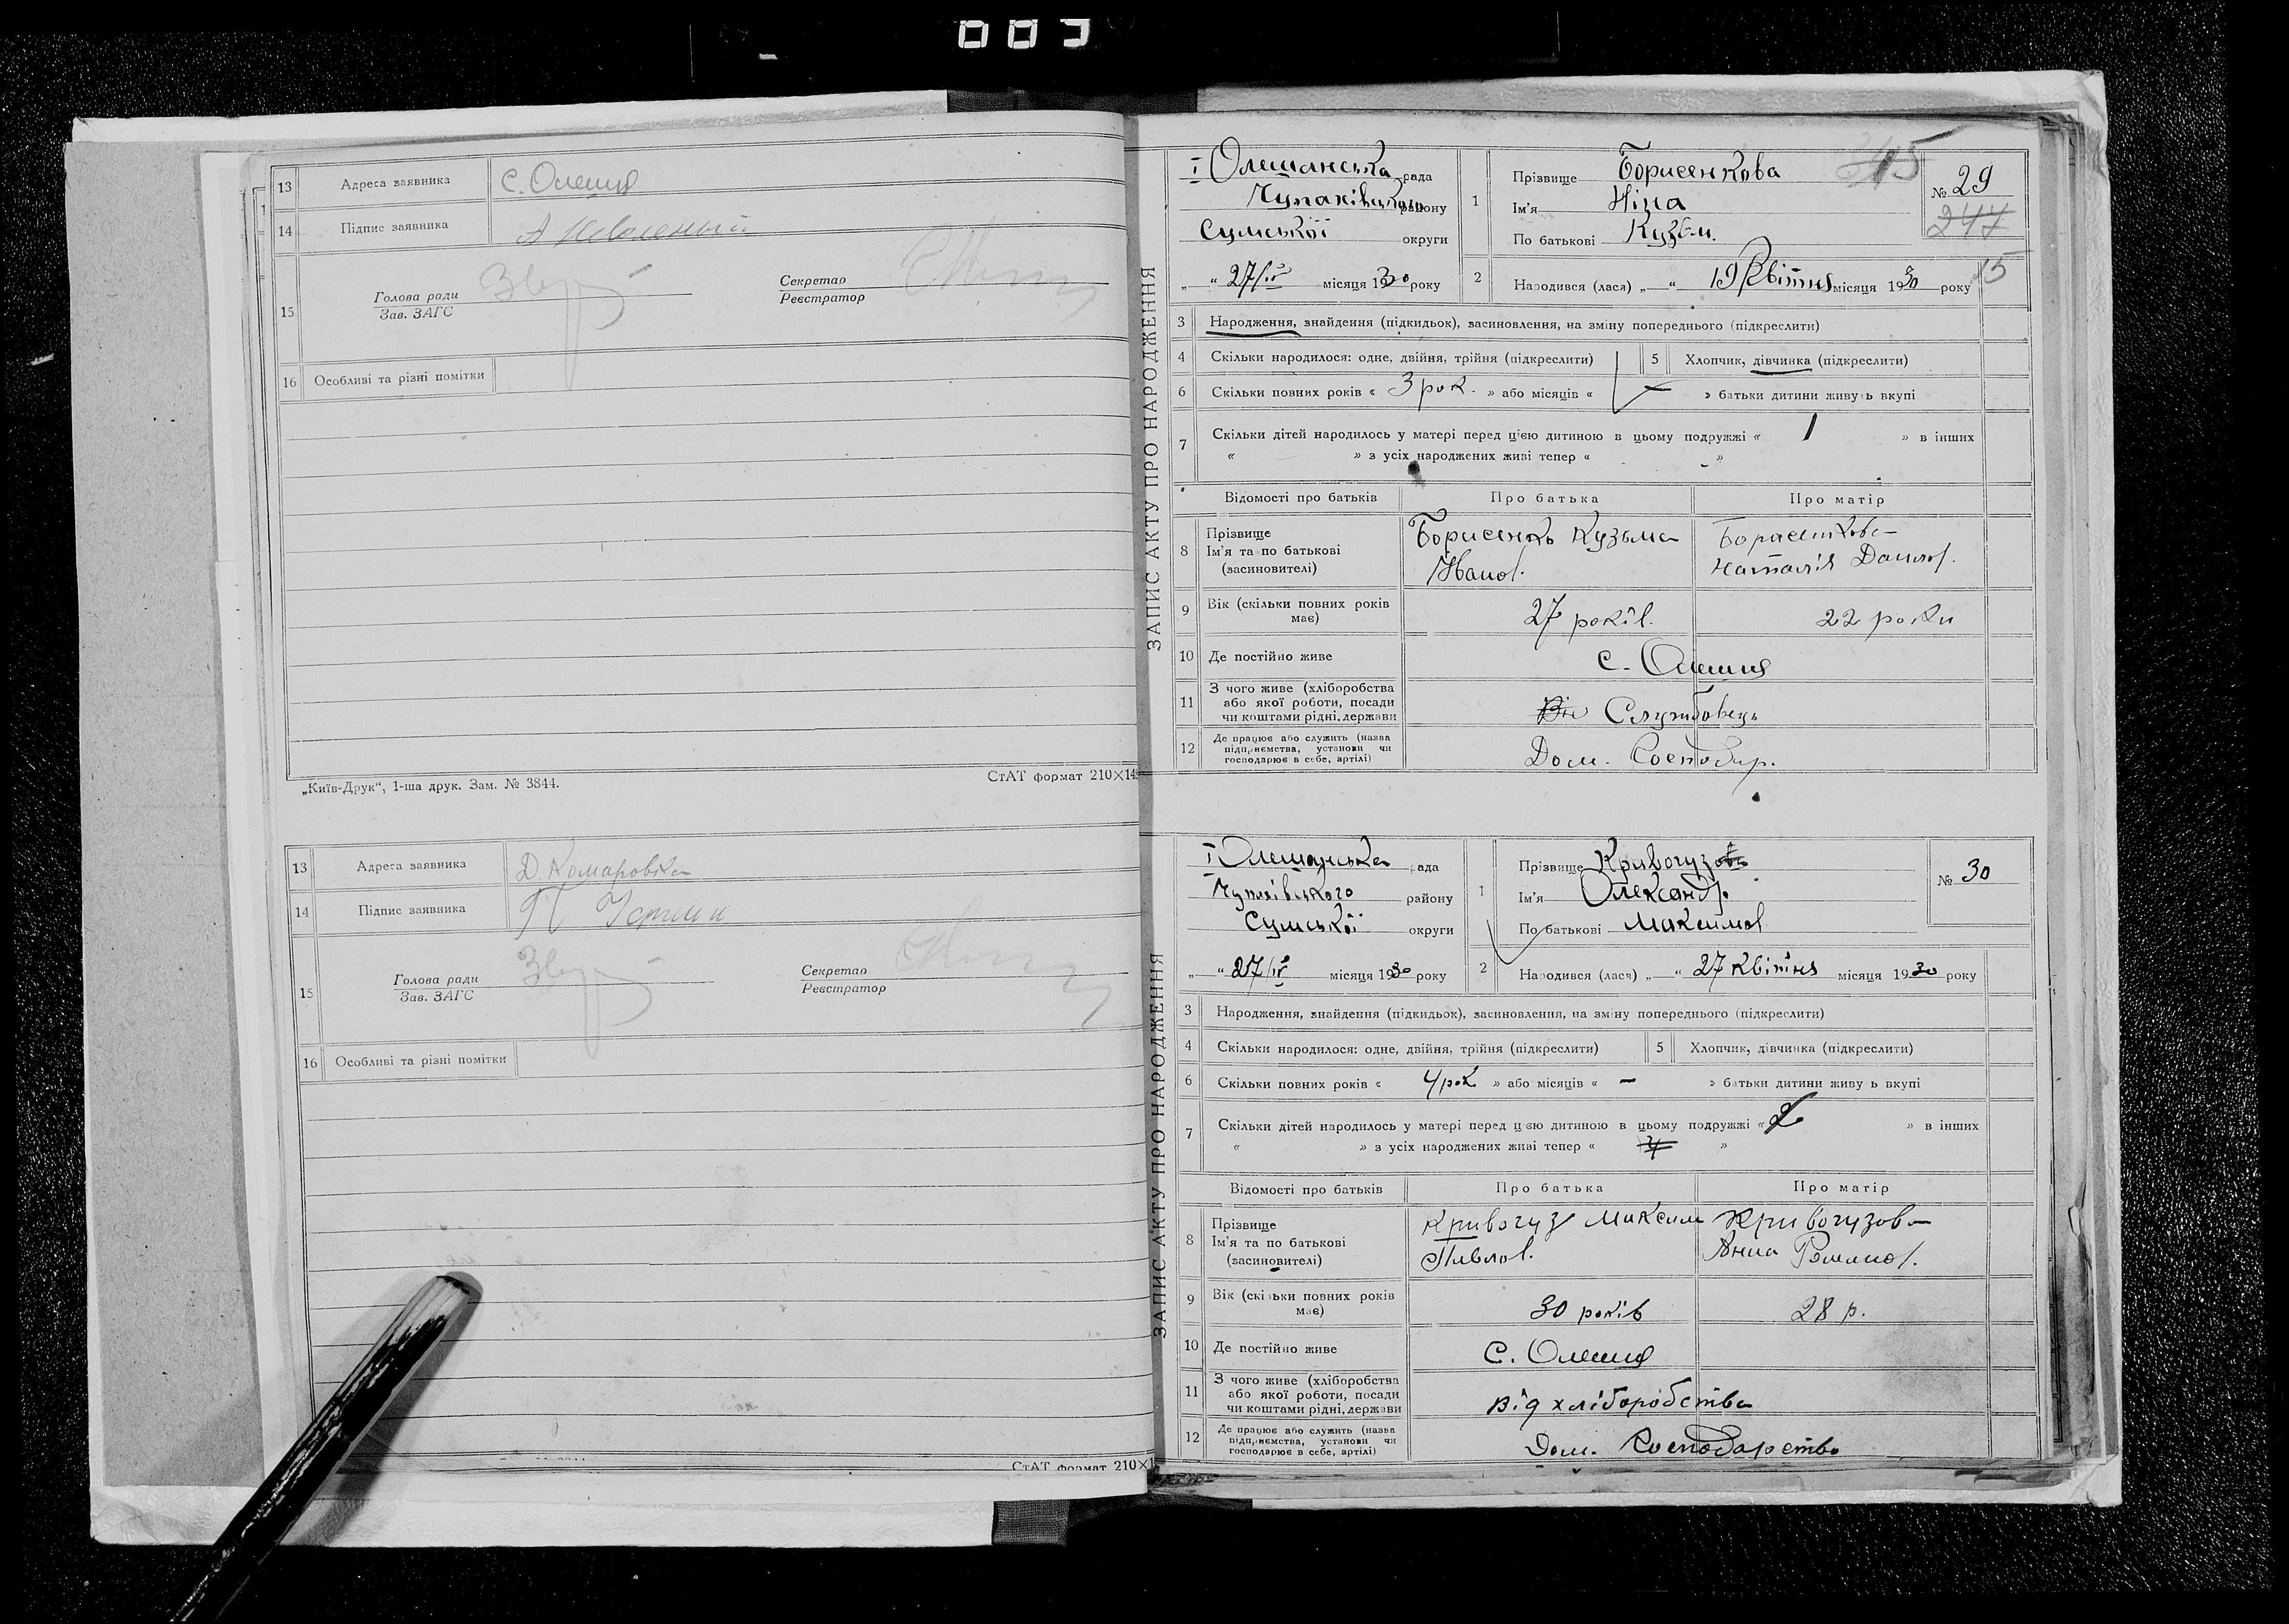 003
13 Адреса заявника с. Олешня
14 Підпис заявника
15 Голова ради
Зав. ЗАГС
Секретар
Реєстратор
16 Особливі та різні помітки
„Київ-Друк“, 1-ша друк. Зам. № 3844.
СтАТ формат 210×14
13 Адреса заявника Д. Комаровка
14 Підпис заявника
15 Голова ради
Зав. ЗАГС
Секретар
Реєстратор
16 Особливі та різні помітки
СтАТ формат 210×1
ЗАПИС АКТУ ПРО НАРОДЖЕННЯ
І Олешанська рада
Чупахівського району
Сумської округи
„ “ 27/IV місяця 1930 року
1 Прізвище Борисенкова
Ім'я Ніна
По батькові Кузьм.
№ 29
247
2 Народився (лася) „ “ 19 Квітня місяця 1930 року
15
3 Народження, знайдення (підкидьок), засиновлення, на зміну попереднього (підкреслити)
4 Скільки народилося: одне, двійня, трійня (підкреслити) 5 Хлопчик, дівчинка (підкреслити)
6 Скільки повних років « 3 рок. » або місяців « — » батьки дитини живуть вкупі
7 Скільки дітей народилось у матері перед цією дитиною в цьому подружжі « 1 » в інших
« » з усіх народжених живі тепер « »
Відомості про батьків Про батька Про матір
8 Прізвище
Ім'я та по батькові
(засиновителі)
Борисенко Кузьма
Іванов.
Борисенкова
Наталія Данилов.
9 Вік (скільки повних років має) 27 років. 22 роки
10 Де постійно живе с. Олешня
11 З чого живе (хліборобства
або якої роботи, посади
чи коштами рідні, держави
Службовець
12 Де працює або служить (назва
підприємства, установи чи
господарює в себе, артілі)
Дом. Господар.
ЗАПИС АКТУ ПРО НАРОДЖЕННЯ
І Олешанська рада
Чупахівського району
Сумської округи
„ “ 27/IV місяця 1930 року
1 Прізвище Кривогуз
Ім'я Олександр.
По батькові Максимов
№ 30
2 Народився (лася) „ “ 27 Квітня місяця 1930 року
3 Народження, знайдення (підкидьок), засиновлення, на зміну попереднього (підкреслити)
4 Скільки народилося: одне, двійня, трійня (підкреслити) 5 Хлопчик, дівчинка (підкреслити)
6 Скільки повних років « 4 рок » або місяців « — » батьки дитини живу ь вкупі
7 Скільки дітей народилось у матері перед цією дитиною в цьому подружжі « 2 » в інших
« » з усіх народжених живі тепер « »
Відомості про батьків Про батька Про матір
8 Прізвище
Ім'я та по батькові
(засиновителі)
Кривогуз Максим
Павлов.
Кривогузова
Анна Романов.
9 Вік (скільки повних років має) 30 років 28 р.
10 Де постійно живе С. Олешня
11 З чого живе (хліборобства
або якої роботи, посади
чи коштами рідні, держави
Від хліборобства
12 Де працює або служить (назва
підприємства, установи чи
господарює в себе, артілі)
Дом. Господарство